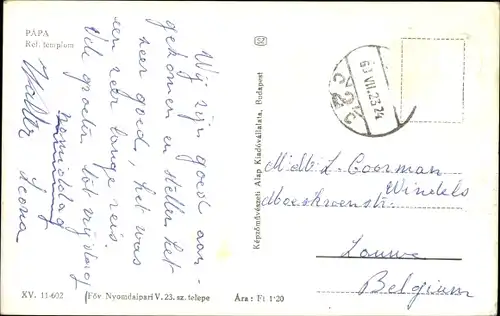 PÁPA
Ref. templom
Wij zijn goed aan-
gekomen en stellen het
zeer goed, het was
een zeer lange reis.
Vele groeten tot vrijdag
namiddag
Walter
Képzőművészeti Alap Kiadóvállalata, Budapest
63 VII. 23 24
L. Coorman
Windels
Moeskroenstr.
Lauwe
Belgium
XV. 11-602
Főv Nyomdaipari V. 23. sz. telepe
Ára: Ft 1·20